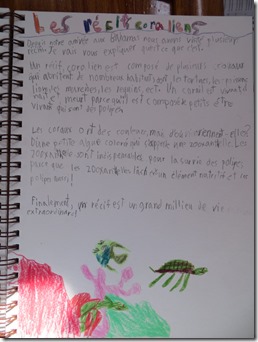 Les récifs coraliens
notre arrivé aux BAHAMAS nous avons visité plusieurs
récifs. Je vais vous expliquer qu'est ce que c'est.
Un récif coralien est composé de plusieurs coraux
qui abritent de nombreux habitants, les tortues, les poissons
anges, les requins ect. Un corail est vivant
meurt parce qu'il est composé de petits être
vivant qui sont des polypes.
Les coraux ont des couleur, mais d'où viennent-elles?
D'une petite algue coloré qui s'appelle une zooxantelle. Les
zooxantelle sont indispensables pour la survie des polypes
parce que les zooxantelles un élément nutritif
Finalement, un récif est un grand millieu de vie
extraordinaire!